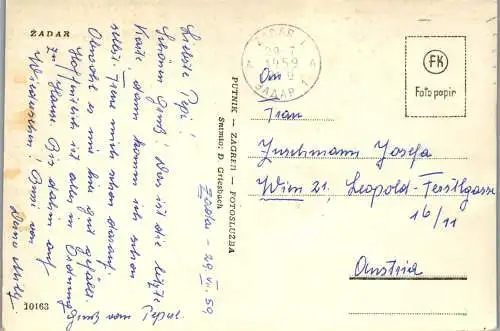 ŽADAR
Zadar - 29. VII. 59
Liebste Pepi!
Schönen Gruß! Das ist die letzte
Karte, dann komm ich schon
selbst. Freue mich schon darauf.
Obwohl es mir hier gut gefällt.
Hoffentlich ist alles in Ordnung
zu Hause. Bis dahin auf
Wiedersehen! Bussi von
Deine
Gruß vom Pepus.
10163
PUTNIK — ZAGREB — FOTOSLUŽBA
Snimio: D. Griesbach
ZADAR 1
29. 7
1959
ЗАДАР 1
FK
Foto papir
An
Frau
Zuschmann Josefa
Wien 21, Leopold-Ferstlgasse
16/11
Austria